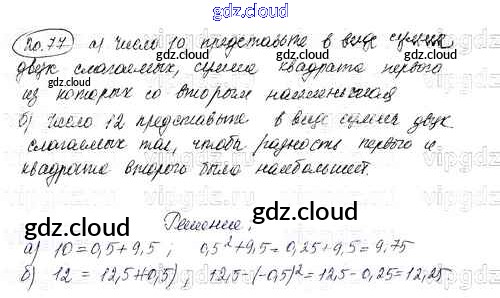 gdz.cloud
№.77 а) число 10 представьте в виде суммы gdz.cloud
двух слагаемых, сумма квадрата первого
из которых со вторым наименьшая
б) число 12 представьте в виде суммы двух
слагаемых так, чтобы разность первого и
квадрата второго была наибольшей.
gdz.cloud gdz.cloud
Решение.
а) 10 = 0,5 + 9,5 ; 0,5² + 9,5 = 0,25 + 9,5 = 9.75
б) 12 = 12,5 + (-0,5) ; 12,5 - (-0,5)² = 12,5 - 0,25 = 12,25
gdz.cloud gdz.cloud